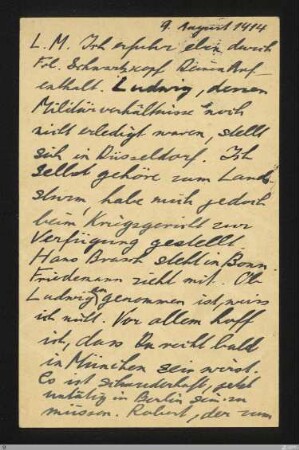 9. August 1914
L. M. Ich erfuhr eben durch
Frl. Schwartzkopf Deinen Auf-
enthalt. Ludwig, dessen
Militärverhältnisse noch
nicht erledigt waren, stellt
sich in Düsseldorf. Ich
selbst gehöre zum Land-
sturm habe mich jedoch
beim Kriegsgericht zur
Verfügung gestellt.
Hans Brasch steht in Bonn.
Friedemann zieht mit. Ob
Ludwig angenommen ist, weiss
ich nicht. Vor allem hoff
ich, dass Du recht bald
in München sein wirst.
Es ist schauderhaft, jetzt
untätig in Berlin sein zu
müssen. Robert, der zum